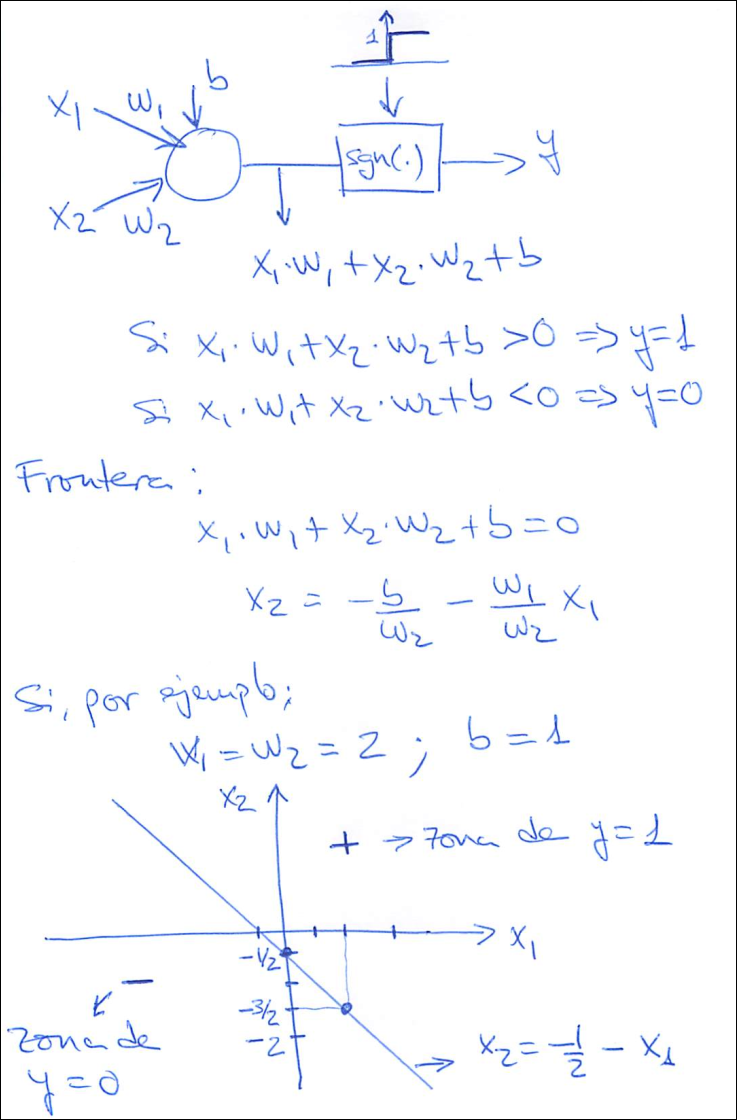 1
b
x₁ w₁
sgn(.) y
x₂ w₂
x₁·w₁+x₂·w₂+b
Si x₁·w₁+x₂·w₂+b >0 => y=1
Si x₁·w₁+x₂·w₂+b <0 => y=0
Frontera:
x₁·w₁+x₂·w₂+b=0
x₂ = -b/w₂ - w₁/w₂ x₁
Si, por ejemplo;
w₁=w₂=2; b=1
x₂
+ → zona de y=1
x₁
-1/2
−
-3/2
zona de
-2
x₂=-1/2 - x₁
y=0